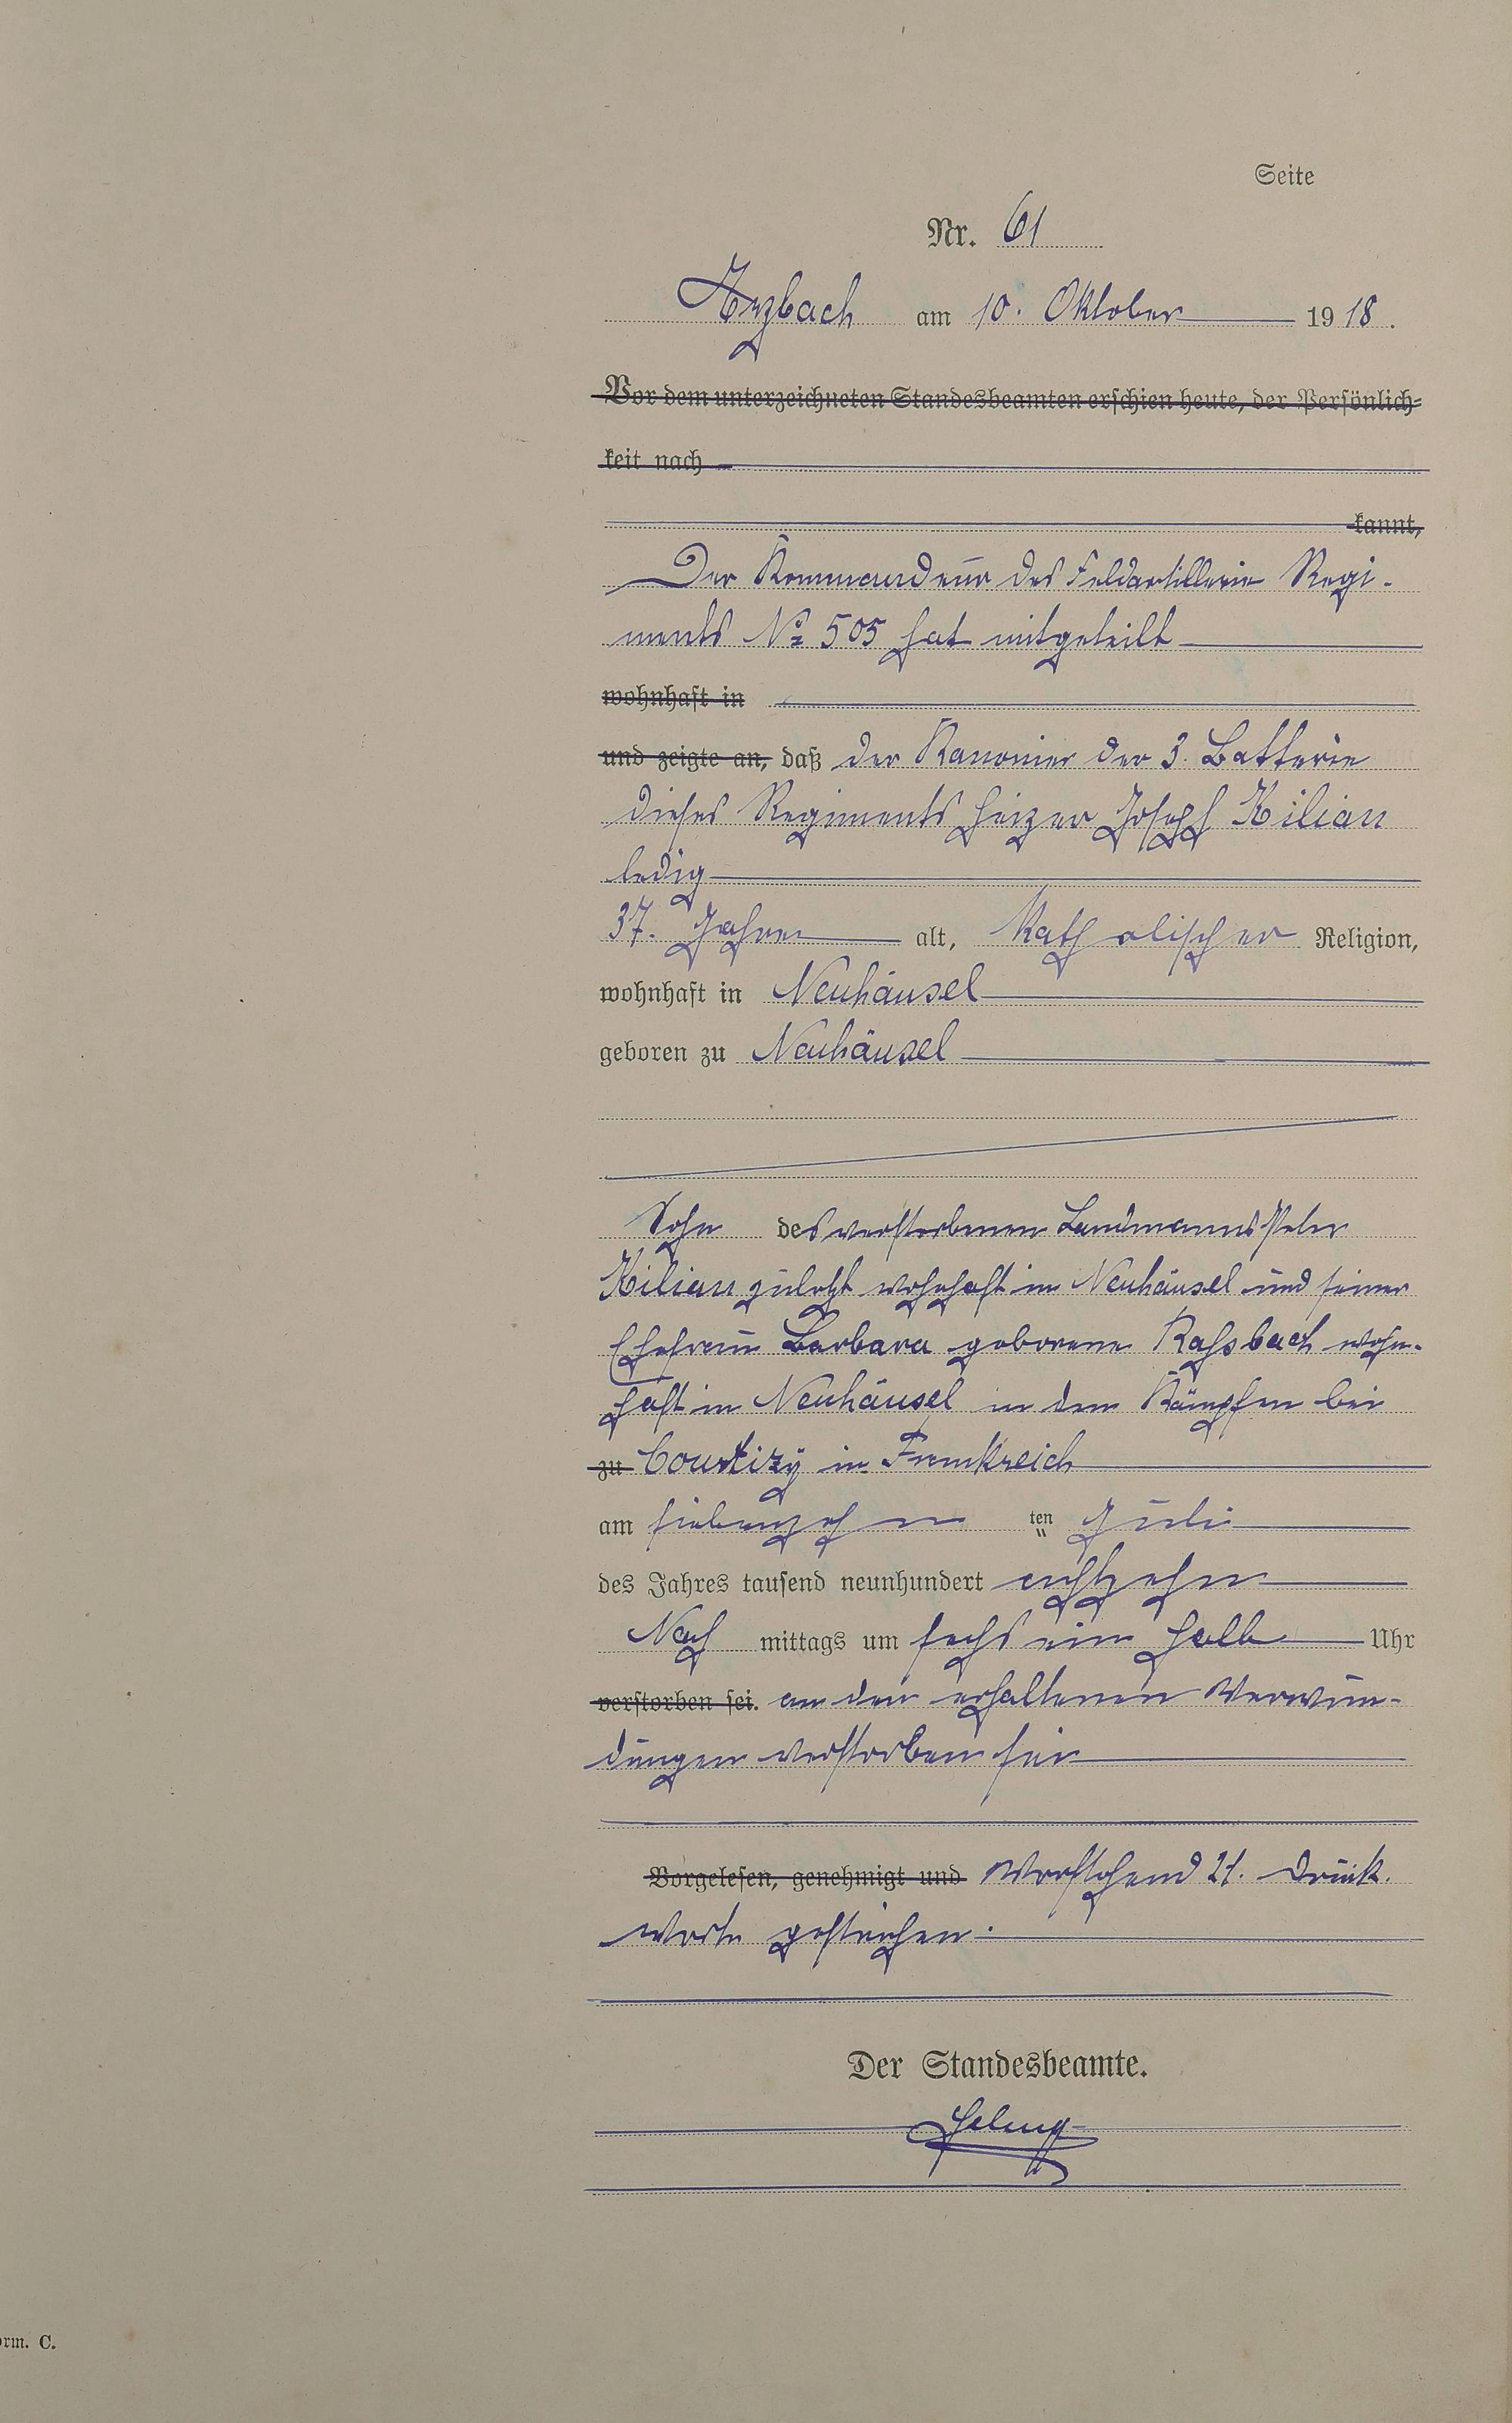 Seite
Nr. 61
Arzbach am 10. Oktober 1918.
Vor dem unterzeichneten Standesbeamten erschien heute, der Persönlich-
keit nach
kannt,
Der Kommandeur des Feldartillerie Regi-
ments No 505 hat mitgeteilt
wohnhaft in
und zeigte an, daß der Kanonier der 3. Batterie
dieses Regiments Heizer Joseph Kilian
ledig
37. Jahre alt, katholischer Religion,
wohnhaft in Neuhäusel
geboren zu Neuhäusel
Sohn des verstorbenen Landmanns Peter
Kilian zuletzt wohnhaft in Neuhäusel und seiner
Ehefrau Barbara geborene wohn-
haft in Neuhäusel in den Kämpfen bei
zu in Frankreich
am siebenzehn ten Juli
des Jahres tausend neunhundert achtzehn
Nach mittags um sechs ein halb Uhr
verstorben sei. an den erhaltenen Verwun-
dungen verstorben sei
Vorgelesen, genehmigt und Vorstehend 21. Druck-
worte gestrichen.
Der Standesbeamte.
orm. C.